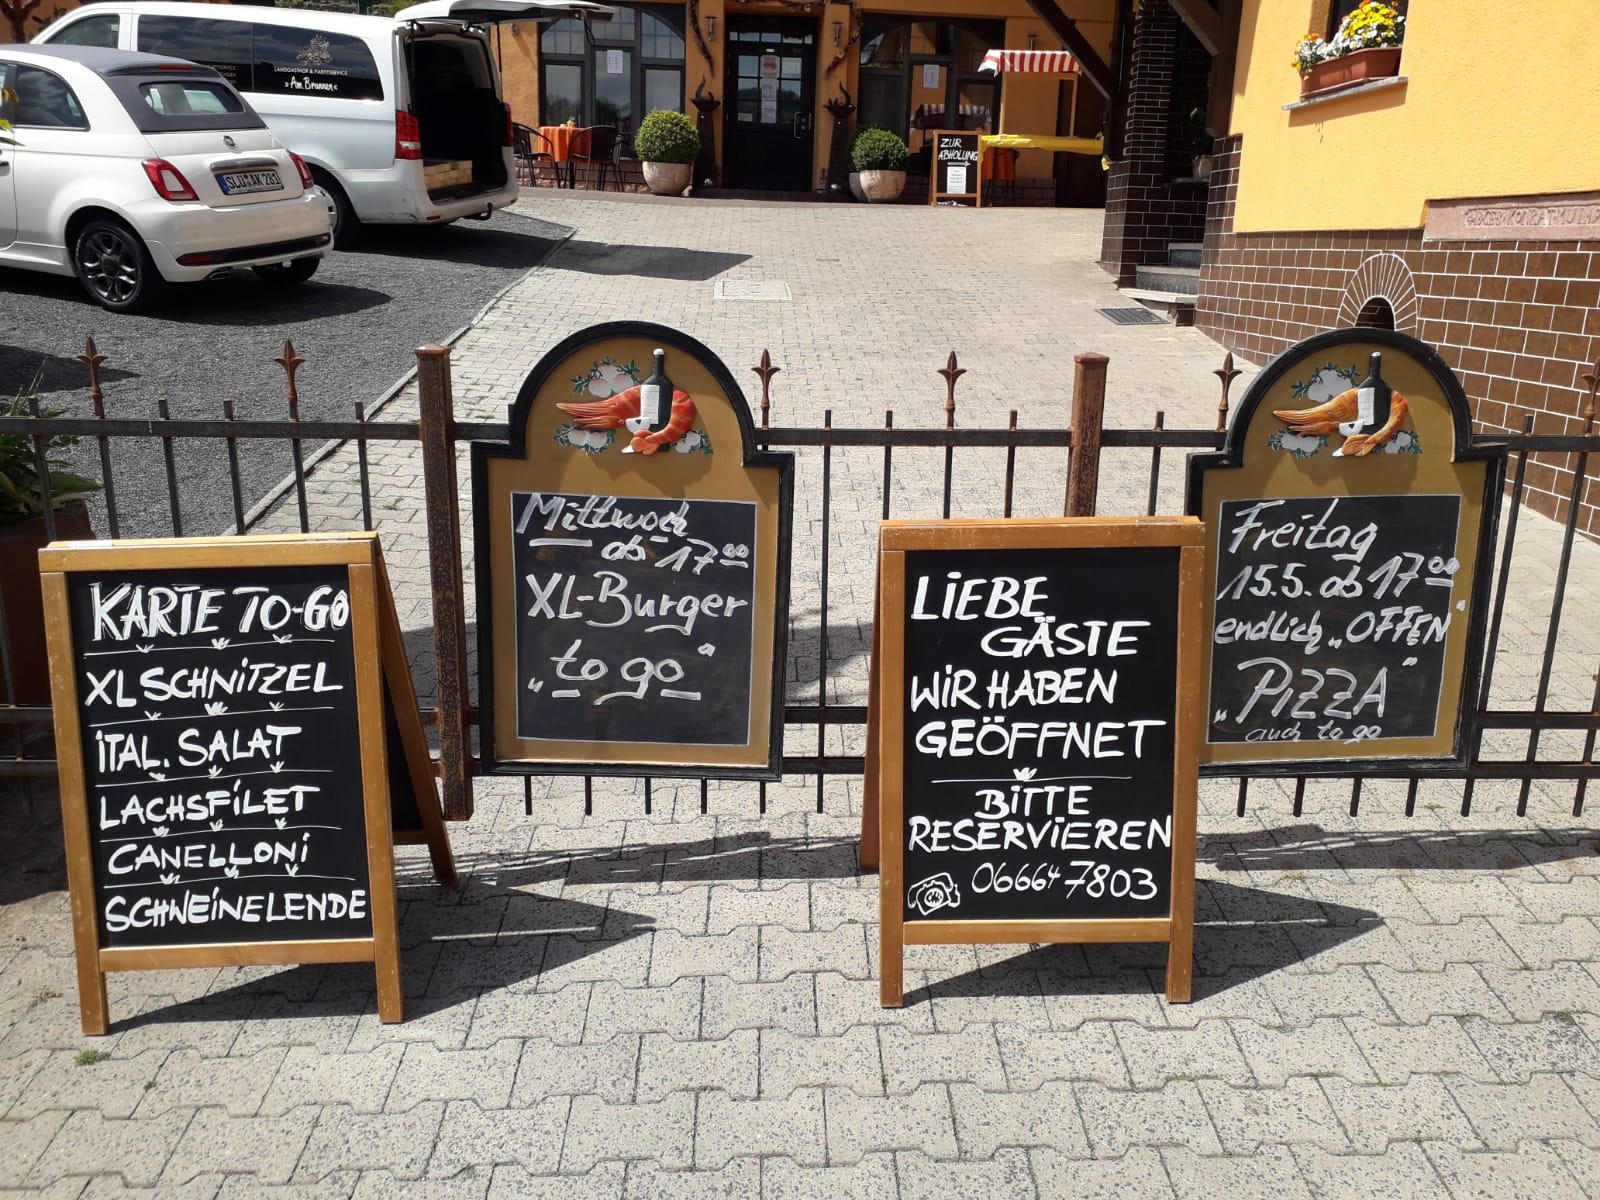 LANDGASTHOF & PARTYSERVICE
»Am Brunnen«
SLÜ AK 281
ZUR
ABHOLUNG
KARTE TO-GO
XL SCHNITZEL
ITAL. SALAT
LACHSFILET
CANELLONI
SCHWEINELENDE
Mittwoch
ab 17⁰⁰
XL-Burger
„to go“
LIEBE
GÄSTE
WIR HABEN
GEÖFFNET
BITTE
RESERVIEREN
06664 7803
Freitag
15.5. ab 17⁰⁰
endlich „OFFEN“
„PIZZA“
auch to go